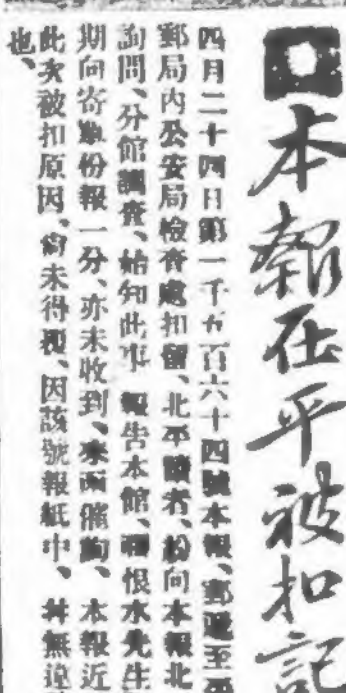 本報在平被扣記
四月二十四日第一千五百六十四號本報、郵遞至平
郵局內公安局檢查處扣留、北平讀者、紛向本報北
詢問、分館調查、始知此事 報告本館、張恨水先生
期向寄數份報一分、亦未收到、來函催詢、本報近
此次被扣原因、尙未得複、因該號報紙中、幷無違
也、